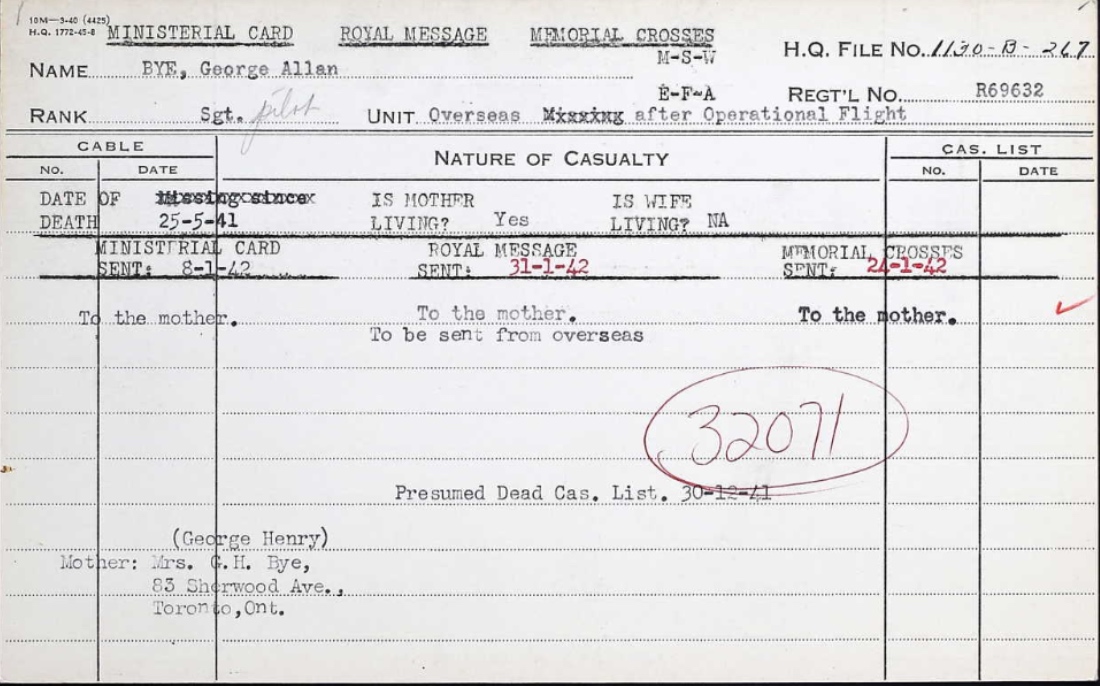 10M—3-40 (4425)
H.Q. 1772-45-8
MINISTERIAL CARD ROYAL MESSAGE MEMORIAL CROSSES
M-S-W
H.Q. FILE NO. 1130-B-267
NAME BYE, George Allan
E-F-A
REGT'L NO. R69632
RANK Sgt. pilot UNIT Overseas Missing after Operational Flight
CABLE NATURE OF CASUALTY CAS. LIST
NO. DATE NO. DATE
DATE OF Missing since IS MOTHER IS WIFE
DEATH 25-5-41 LIVING? Yes LIVING? NA
MINISTERIAL CARD ROYAL MESSAGE MEMORIAL CROSSES
SENT: 8-1-42 SENT: 31-1-42 SENT: 24-1-42
To the mother. To the mother. To the mother.
To be sent from overseas
32071
Presumed Dead Cas. List. 30-12-41
(George Henry)
Mother: Mrs. G.H. Bye,
83 Sherwood Ave.,
Toronto,Ont.